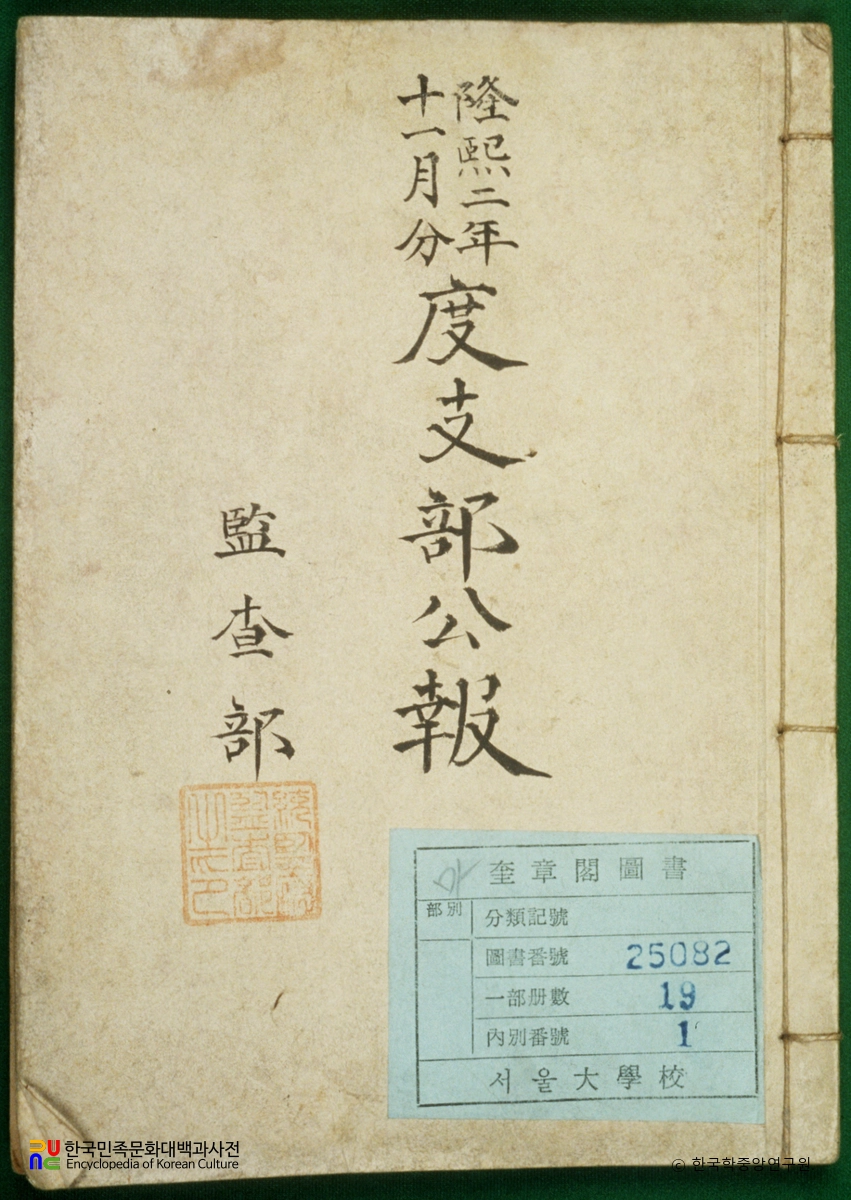 隆熙二年
十一月分
度支部公報
監査部
奎章閣圖書
部別
分類記號
圖書番號 25082
一部册數 19
內別番號 1
서울大學校
한국민족문화대백과사전
Encyclopedia of Korean Culture
© 한국학중앙연구원